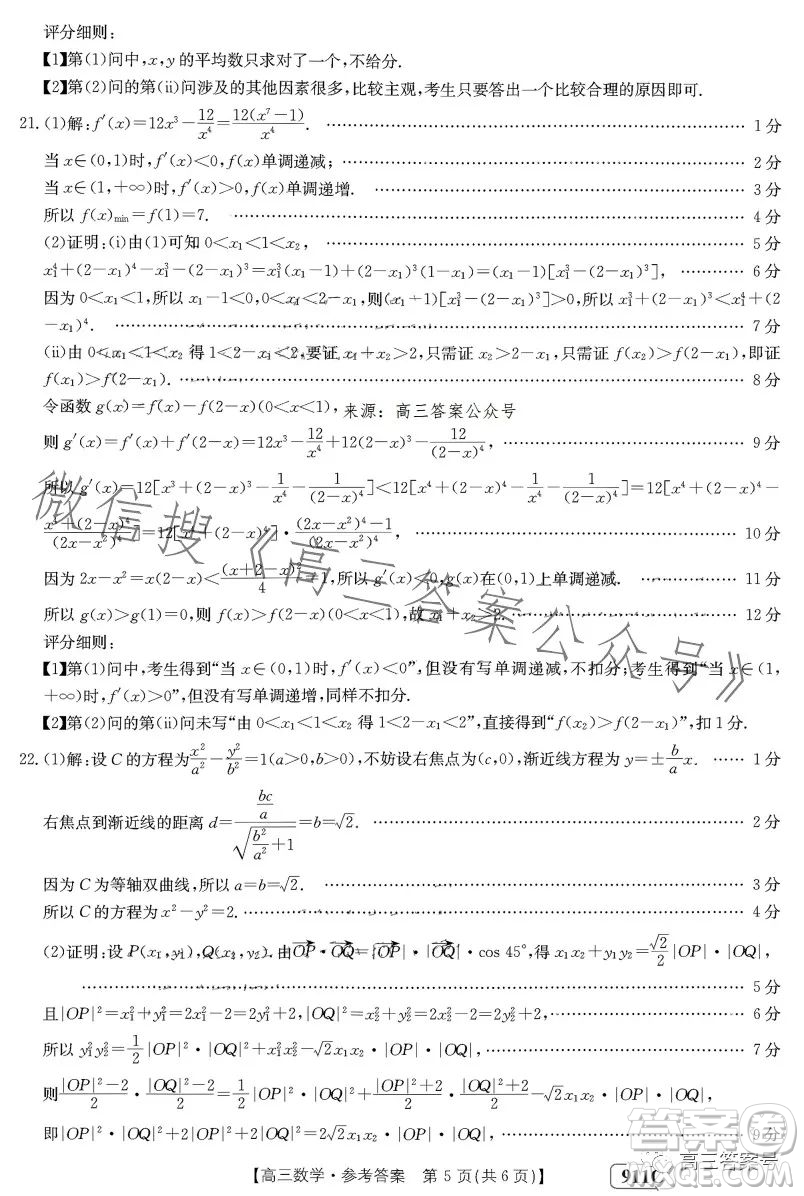 评分细则:
【1】第(1)问中,x,y的平均数只求对了一个,不给分.
【2】第(2)问的第(ii)问涉及的其他因素很多,比较主观,考生只要答出一个比较合理的原因即可.
21.(1)解:f′(x)=12x³−12/x⁴=12(x⁷−1)/x⁴. …… 1分
当x∈(0,1)时,f′(x)<0,f(x)单调递减; …… 2分
当x∈(1,+∞)时,f′(x)>0,f(x)单调递增. …… 3分
所以f(x)min=f(1)=7. …… 4分
(2)证明:(i)由(1)可知0<x₁<1<x₂, …… 5分
x₁⁴+(2−x₁)⁴−x₁³−(2−x₁)³=x₁³(x₁−1)+(2−x₁)³(1−x₁)=(x₁−1)[x₁³−(2−x₁)³], …… 6分
因为0<x₁<1,所以x₁−1<0,0<x₁<2−x₁,则(x₁−1)[x₁³−(2−x₁)³]>0,所以x₁³+(2−x₁)³<x₁⁴+(2
−x₁)⁴. …… 7分
(ii)由0<x₁<1<x₂得1<2−x₁<2,要证x₁+x₂>2,只需证x₂>2−x₁,只需证f(x₂)>f(2−x₁),即证
f(x₁)>f(2−x₁). …… 8分
令函数g(x)=f(x)−f(2−x)(0<x<1), 来源:高三答案公众号
则g′(x)=f′(x)+f′(2−x)=12x³−12/x⁴+12(2−x)³−12/(2−x)⁴, …… 9分
所以g′(x)=12[x³+(2−x)³−1/x⁴−1/(2−x)⁴]<12[x⁴+(2−x)⁴−1/x⁴−1/(2−x)⁴]=12[x⁴+(2−x)⁴−
x⁴+(2−x)⁴/(2x−x²)⁴]=12[x⁴+(2−x)⁴]·(2x−x²)⁴−1/(2x−x²)⁴. …… 10分
因为2x−x²=x(2−x)<(x+2−x)²/4=1,所以g′(x)<0,g(x)在(0,1)上单调递减. …… 11分
所以g(x)>g(1)=0,则f(x)>f(2−x)(0<x<1),故x₁+x₂>2. …… 12分
评分细则:
【1】第(1)问中,考生得到“当x∈(0,1)时,f′(x)<0”,但没有写单调递减,不扣分;考生得到“当x∈(1,
+∞)时,f′(x)>0”,但没有写单调递增,同样不扣分.
【2】第(2)问的第(ii)问未写“由0<x₁<1<x₂得1<2−x₁<2”,直接得到“f(x₁)>f(2−x₁)”,扣1分.
22.(1)解:设C的方程为x²/a²−y²/b²=1(a>0,b>0),不妨设右焦点为(c,0),渐近线方程为y=±b/a x. …… 1分
右焦点到渐近线的距离d=(bc/a)/√(b²/a²+1)=b=√2. …… 2分
因为C为等轴双曲线,所以a=b=√2. …… 3分
所以C的方程为x²−y²=2. …… 4分
(2)证明:设P(x₁,y₁),Q(x₂,y₂).由OP·OQ=|OP|·|OQ|·cos 45°,得x₁x₂+y₁y₂=√2/2|OP|·|OQ|,
…… 5分
且|OP|²=x₁²+y₁²=2x₁²−2=2y₁²+2,|OQ|²=x₂²+y₂²=2x₂²−2=2y₂²+2, …… 6分
所以y₁²y₂²=1/2|OP|²·|OQ|²+x₁²x₂²−√2x₁x₂·|OP|·|OQ|, …… 7分
则|OP|²−2/2·|OQ|²−2/2=1/2|OP|²·|OQ|²+|OP|²+2/2·|OQ|²+2/2−√2x₁x₂·|OP|·|OQ|,
即|OP|²·|OQ|²+2|OP|²+2|OQ|²=2√2x₁x₂·|OP|·|OQ|, …… 9分
【高三数学·参考答案 第5页(共6页)】
911C
微信搜《高三答案公众号》
答案圈
高三答案号